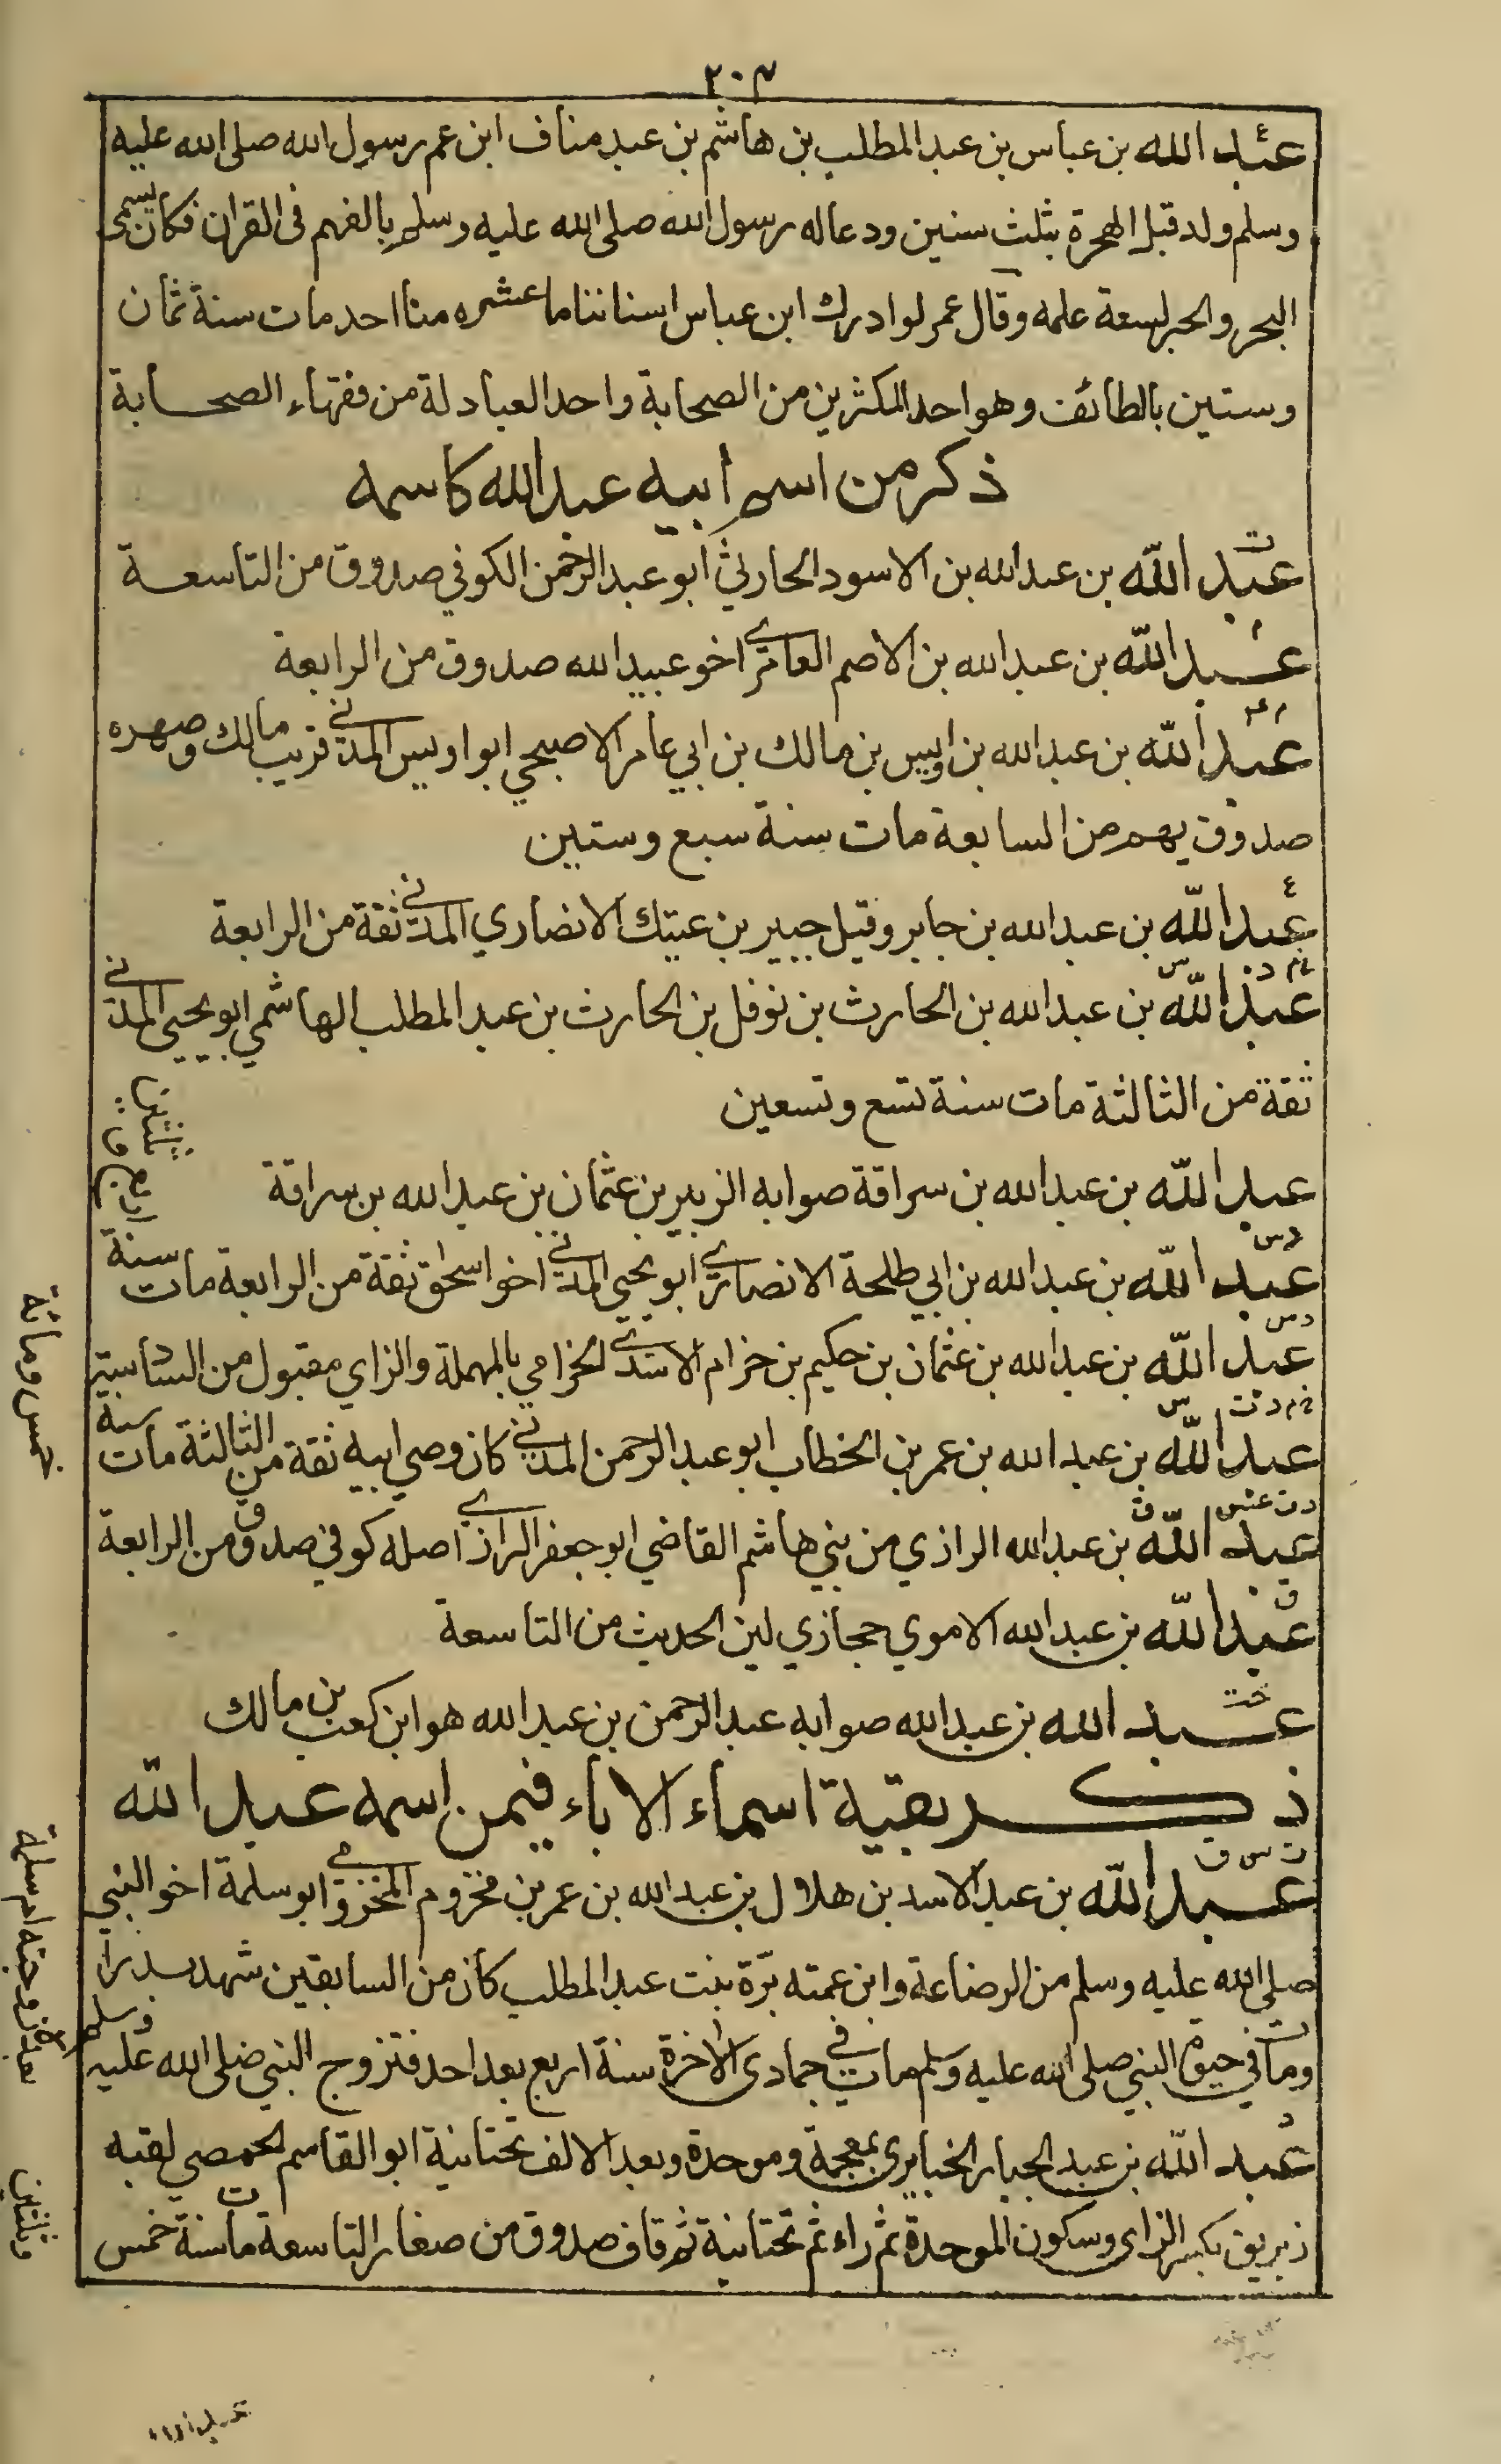 ٢٠٣
ع
عبد الله بن عباس بن عبد المطلب بن هاشم بن عبد مناف ابن عم رسول الله صلى الله عليه
وسلم ولد قبل الهجرة بثلث سنين ودعا له رسول الله صلى الله عليه وسلم بالفهم فى القران فكان يسمى
البحر والحبر لسعة علمه وقال عمر لو ادرك ابن عباس اسناننا ما عشره منا احد مات سنة ثمان
وستين بالطائف وهو احد المكثرين من الصحابة واحد العبادلة من فقهاء الصحابة
ذكر من اسم ابيه عبد الله كاسمه
ت
عبد الله بن عبد الله بن الاسود الحارثي ابو عبد الرحمن الكوفي صدوق من التاسعة
م
عبد الله بن عبد الله بن الاصم العامري اخو عبيد الله صدوق من الرابعة
م ٤
عبد الله بن عبد الله بن اويس بن مالك بن ابي عامر الاصبحي ابو اويس المدني قريب مالك وصهره
صدوق يهم من السابعة مات سنة سبع وستين
ع
عبد الله بن عبد الله بن جابر وقيل جبير بن عتيك الانصاري المدني ثقة من الرابعة
خ م د س
عبد الله بن عبد الله بن الحارث بن نوفل بن الحارث بن عبد المطلب الهاشمي ابو يحيى المدني
ثقة من الثالثة مات سنة تسع وتسعين
عبد الله بن عبد الله بن سراقة صوابه الزبير بن عثمان بن عبد الله بن سراقة
م س
عبد الله بن عبد الله بن ابي طلحة الانصاري ابو يحيى المدني اخو اسحق ثقة من الرابعة مات سنة
اربع وثلثين
د س
عبد الله بن عبد الله بن عثمان بن حكيم بن حزام الاسدي الحزامي بالمهملة والزاي مقبول من السادسة
خ م د ت س
عبد الله بن عبد الله بن عمر بن الخطاب ابو عبد الرحمن المدني كان وصي ابيه ثقة من الثالثة مات سنة
خمس ومائة
د ت عس ق
عبد الله بن عبد الله الرازي من بني هاشم القاضي ابو جعفر الرازي اصله كوفي صدوق من الرابعة
ق
عبد الله بن عبد الله الاموي حجازي لين الحديث من التاسعة
خت
عبد الله بن عبد الله صوابه عبد الرحمن بن عبد الله هو ابن كعب بن مالك
ذكر بقية اسماء الاباء فيمن اسمه عبد الله
ت س ق
عبد الله بن عبد الاسد بن هلال بن عبد الله بن عمر بن مخزوم المخزومي ابو سلمة اخو النبي
صلى الله عليه وسلم من الرضاعة وابن عمته برّة بنت عبد المطلب كان من السابقين شهد بدرا
ومات في حيوة النبي صلى الله عليه وسلم مات في جمادى الاخرة سنة اربع بعد احد فتزوج النبي صلى الله عليه وسلم
بعده زوجته ام سلمة
د
عبد الله بن عبد الجبار الخبايري بمعجمة وموحدة وبعد الالف تحتانية ابو القاسم الحمصي لقبه
زبريق بكسر الزاي وسكون الموحدة ثم راء ثم تحتانية ثم قاف صدوق من صغار التاسعة مات سنة خمس
وثلثين